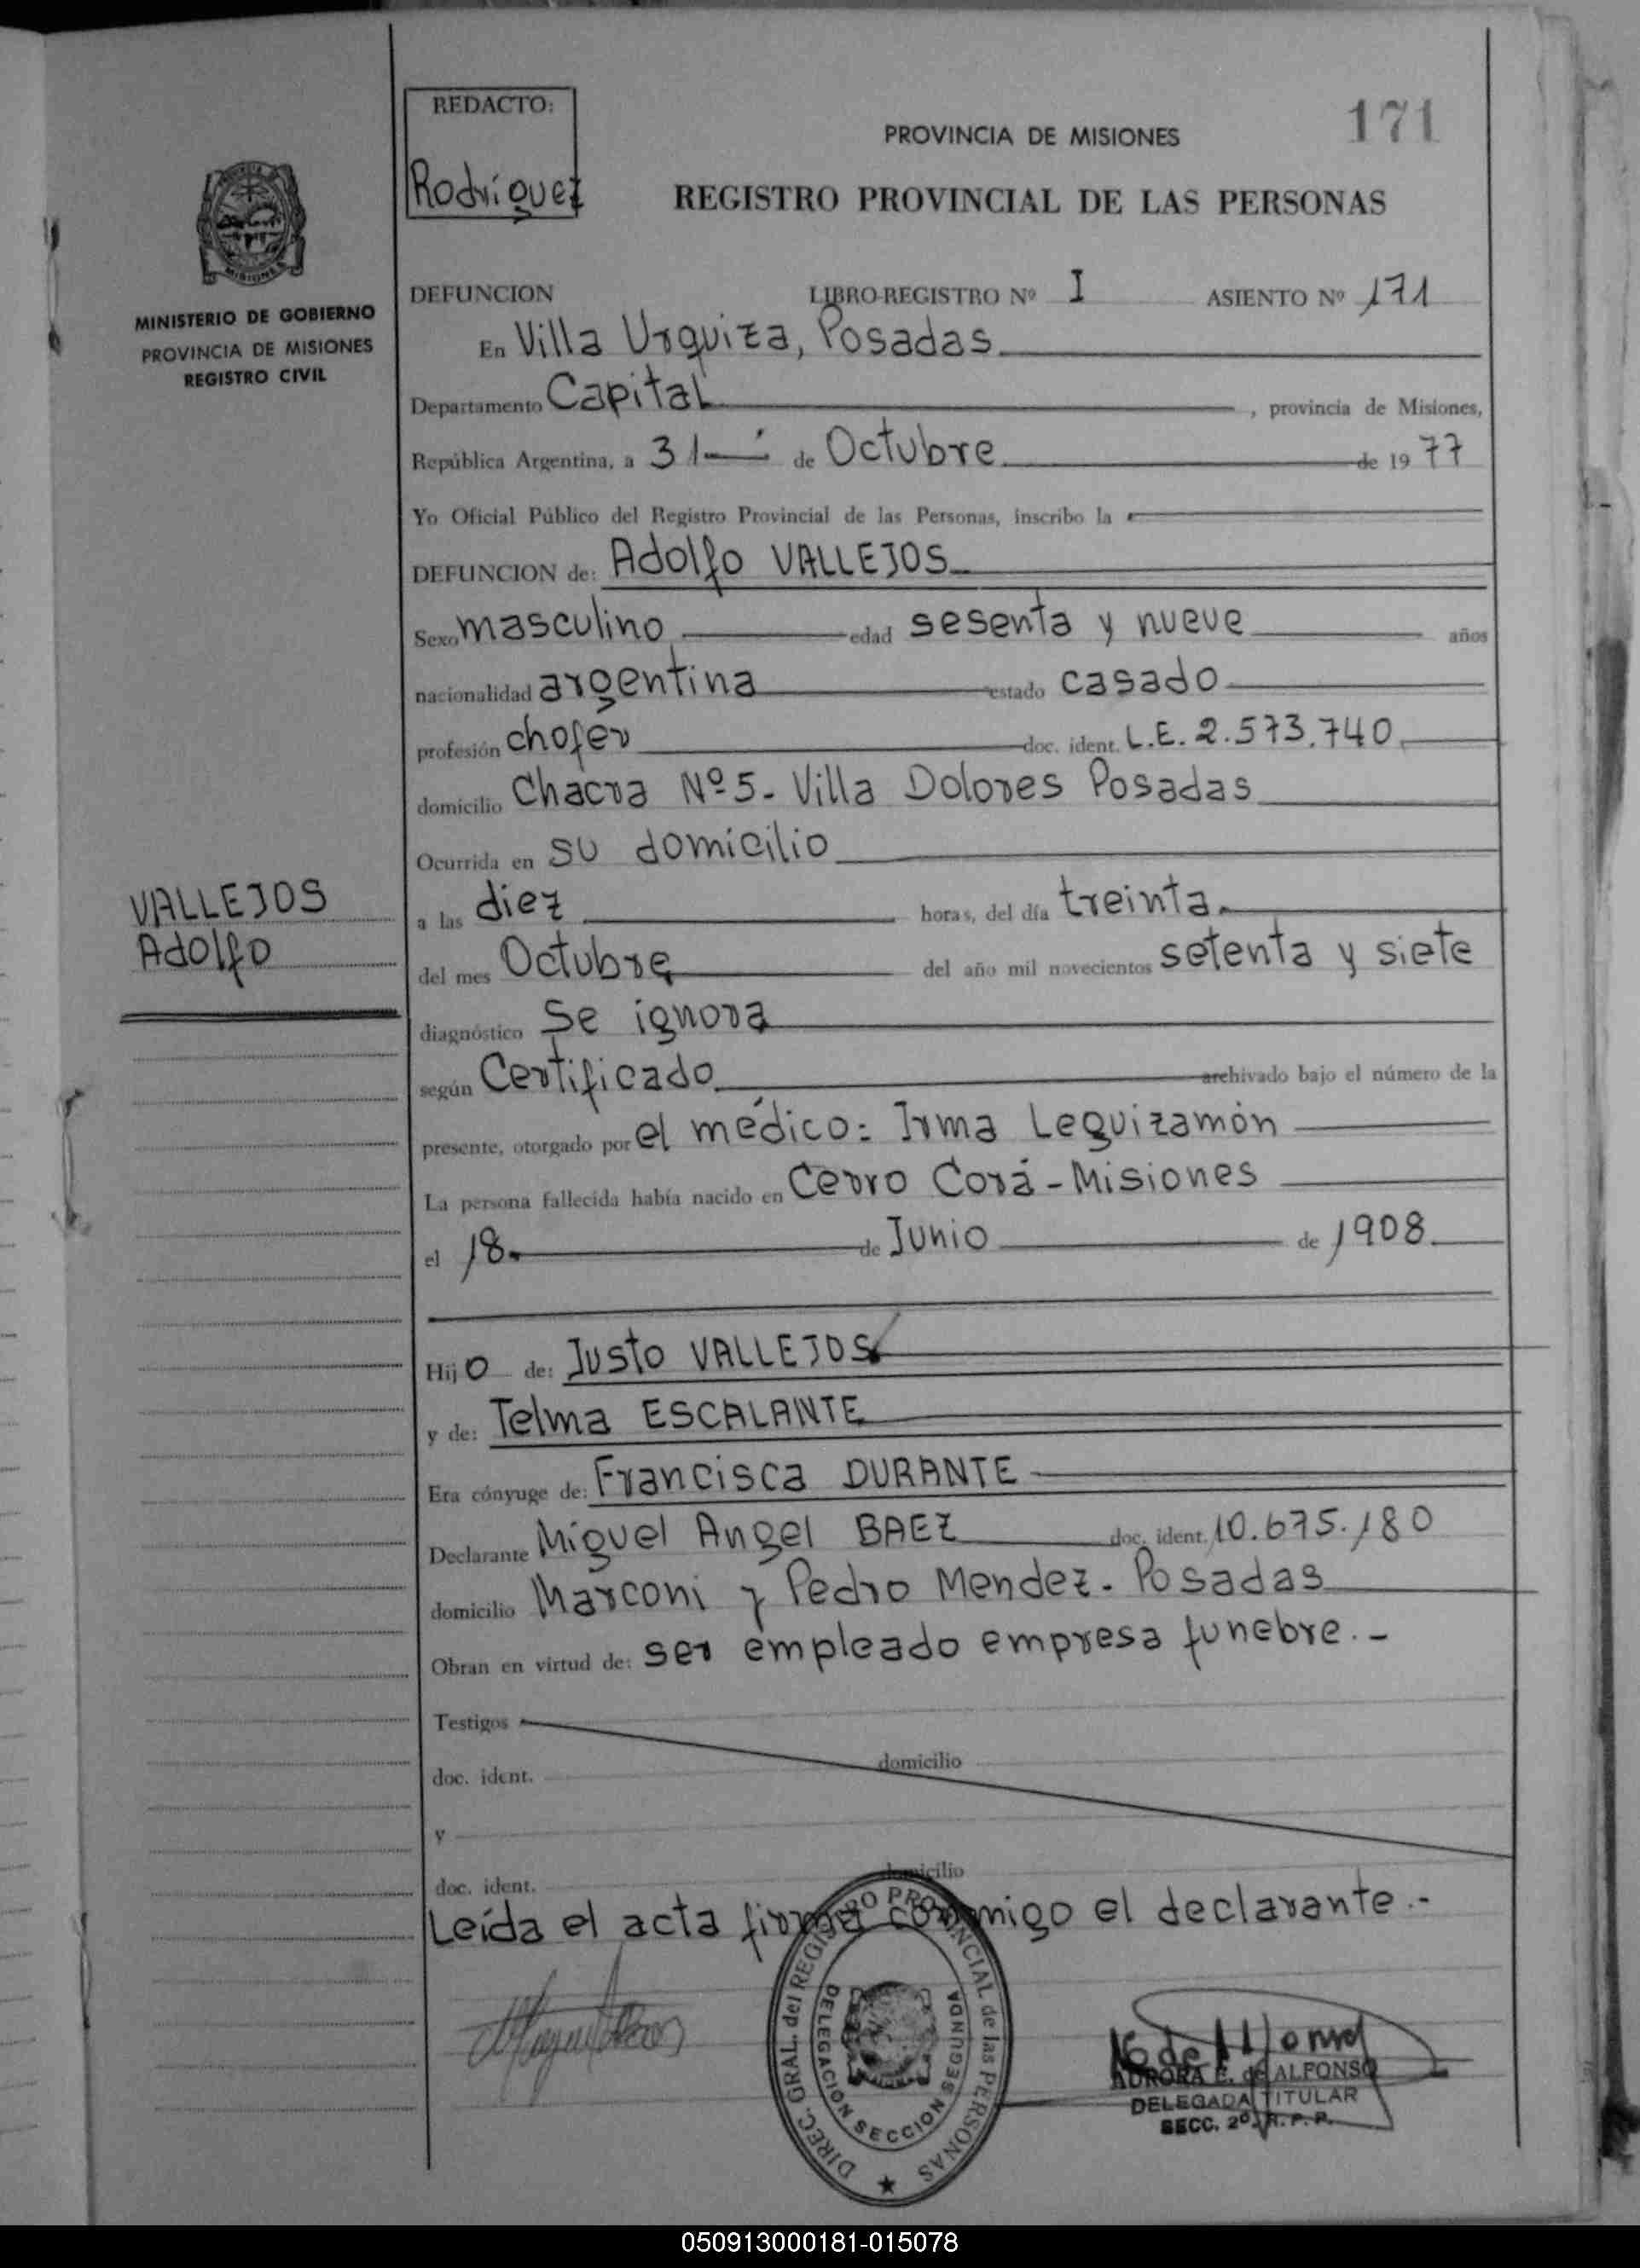 171
REDACTO:
Rodríguez
PROVINCIA DE MISIONES
REGISTRO PROVINCIAL DE LAS PERSONAS
MISIONES
MINISTERIO DE GOBIERNO
PROVINCIA DE MISIONES
REGISTRO CIVIL
DEFUNCION LIBRO-REGISTRO Nº I ASIENTO Nº 171
En Villa Urquiza, Posadas
Departamento Capital, provincia de Misiones,
República Argentina, a 31 de Octubre de 1977
Yo Oficial Público del Registro Provincial de las Personas, inscribo la
DEFUNCION de: Adolfo VALLEJOS
Sexo masculino edad sesenta y nueve años
nacionalidad argentina estado casado
profesión chofer doc. ident. L.E. 2.573.740
domicilio Chacra Nº 5 - Villa Dolores Posadas
Ocurrida en su domicilio
VALLEJOS
Adolfo
a las diez horas, del día treinta
del mes Octubre del año mil novecientos setenta y siete
diagnóstico Se ignora
según Certificado archivado bajo el número de la
presente, otorgado por el médico: Irma Leguizamón
La persona fallecida había nacido en Cerro Corá - Misiones
el 18 de Junio de 1908
Hijo de: Justo VALLEJOS
y de: Telma ESCALANTE
Era cónyuge de: Francisca DURANTE
Declarante Miguel Angel BAEZ doc. ident. 10.675.180
domicilio Marconi y Pedro Mendez - Posadas
Obran en virtud de: ser empleado empresa funebre.-
Testigos
doc. ident. domicilio
y
doc. ident. domicilio
Leída el acta firma conmigo el declarante.-
DIREC. GRAL. del REGISTRO PROVINCIAL de las PERSONAS
DELEGACION SECCION SEGUNDA
AURORA E. de ALFONSO
DELEGADA TITULAR
SECC. 2º R. P. P.
050913000181-015078